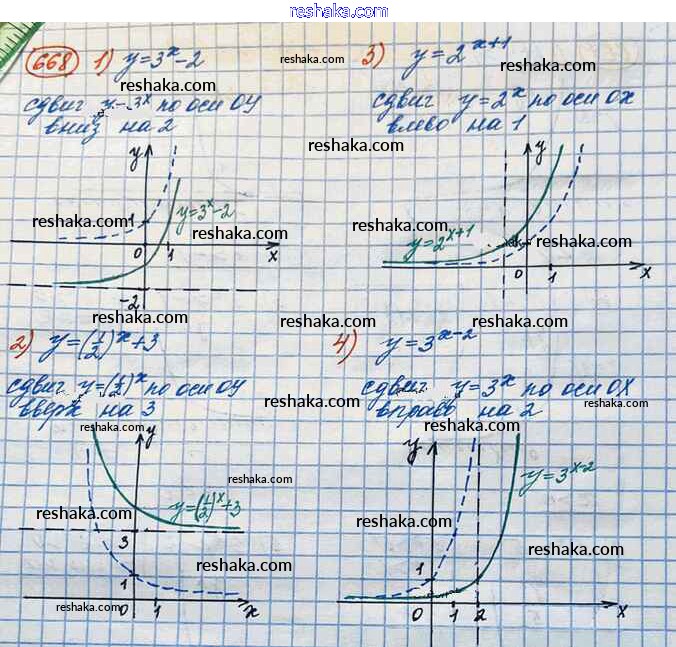 reshaka.com
668 1) y=3^x-2
reshaka.com
сдвиг y=3^x по оси OY
вниз на 2
reshaka.com
y
1
reshaka.com
y=3^x-2
reshaka.com
0 1 x
-2
reshaka.com
3) y=2^{x+1}
reshaka.com
сдвиг y=2^x по оси OX
влево на 1
reshaka.com
y
reshaka.com
y=2^{x+1}
reshaka.com
0 1 x
reshaka.com
2) y=(1/2)^x+3
reshaka.com
сдвиг y=(1/2)^x по оси OY
вверх на 3
reshaka.com
reshaka.com
y
reshaka.com
y=(1/2)^x+3
reshaka.com
3
reshaka.com
1
reshaka.com
0 1 x
reshaka.com
4) y=3^{x-2}
reshaka.com
сдвиг y=3^x по оси OX
вправо на 2
reshaka.com
reshaka.com
y
y=3^{x-2}
reshaka.com
reshaka.com
1
reshaka.com
0 1 2 x